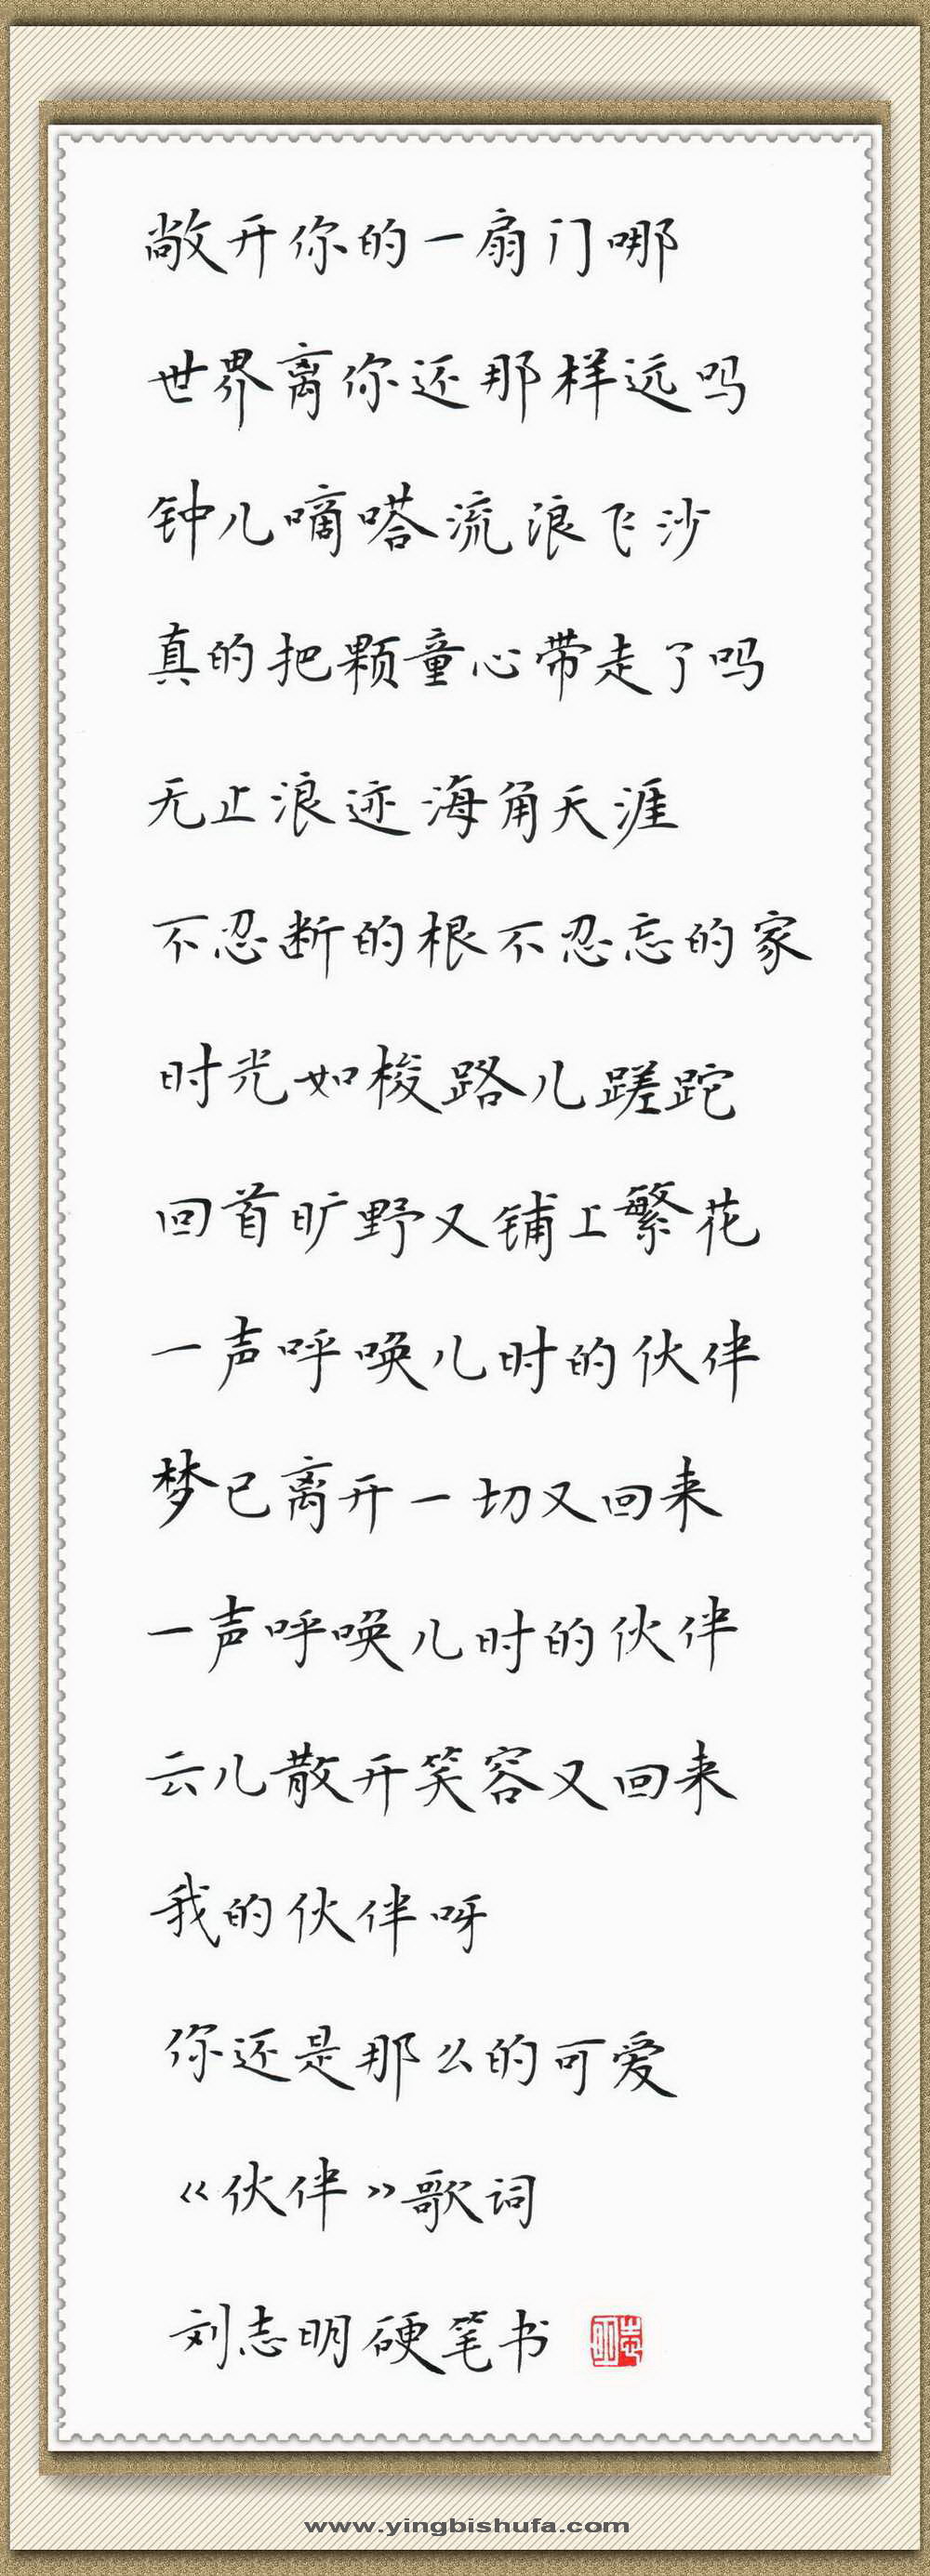 敞开你的一扇门哪
世界离你还那样远吗
钟儿嘀嗒流浪飞沙
真的把颗童心带走了吗
无止浪迹海角天涯
不忍断的根不忍忘的家
时光如梭路儿蹉跎
回首旷野又铺上繁花
一声呼唤儿时的伙伴
梦已离开一切又回来
一声呼唤儿时的伙伴
云儿散开笑容又回来
我的伙伴呀
你还是那么的可爱
《伙伴》歌词
刘志明硬笔书
志明
www.yingbishufa.com